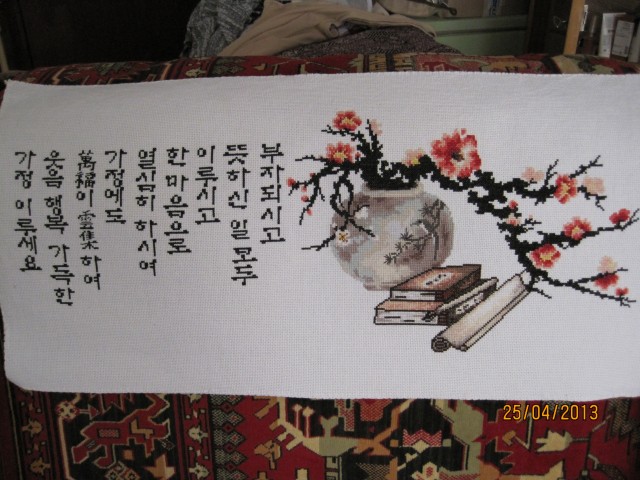 부자되시고
뜻하신 일 모두
이루시고
한 마음으로
열심히 하시여
가정에도
萬福이 雲集하여
웃음 행복 가득한
가정 이루세요
25/04/2013